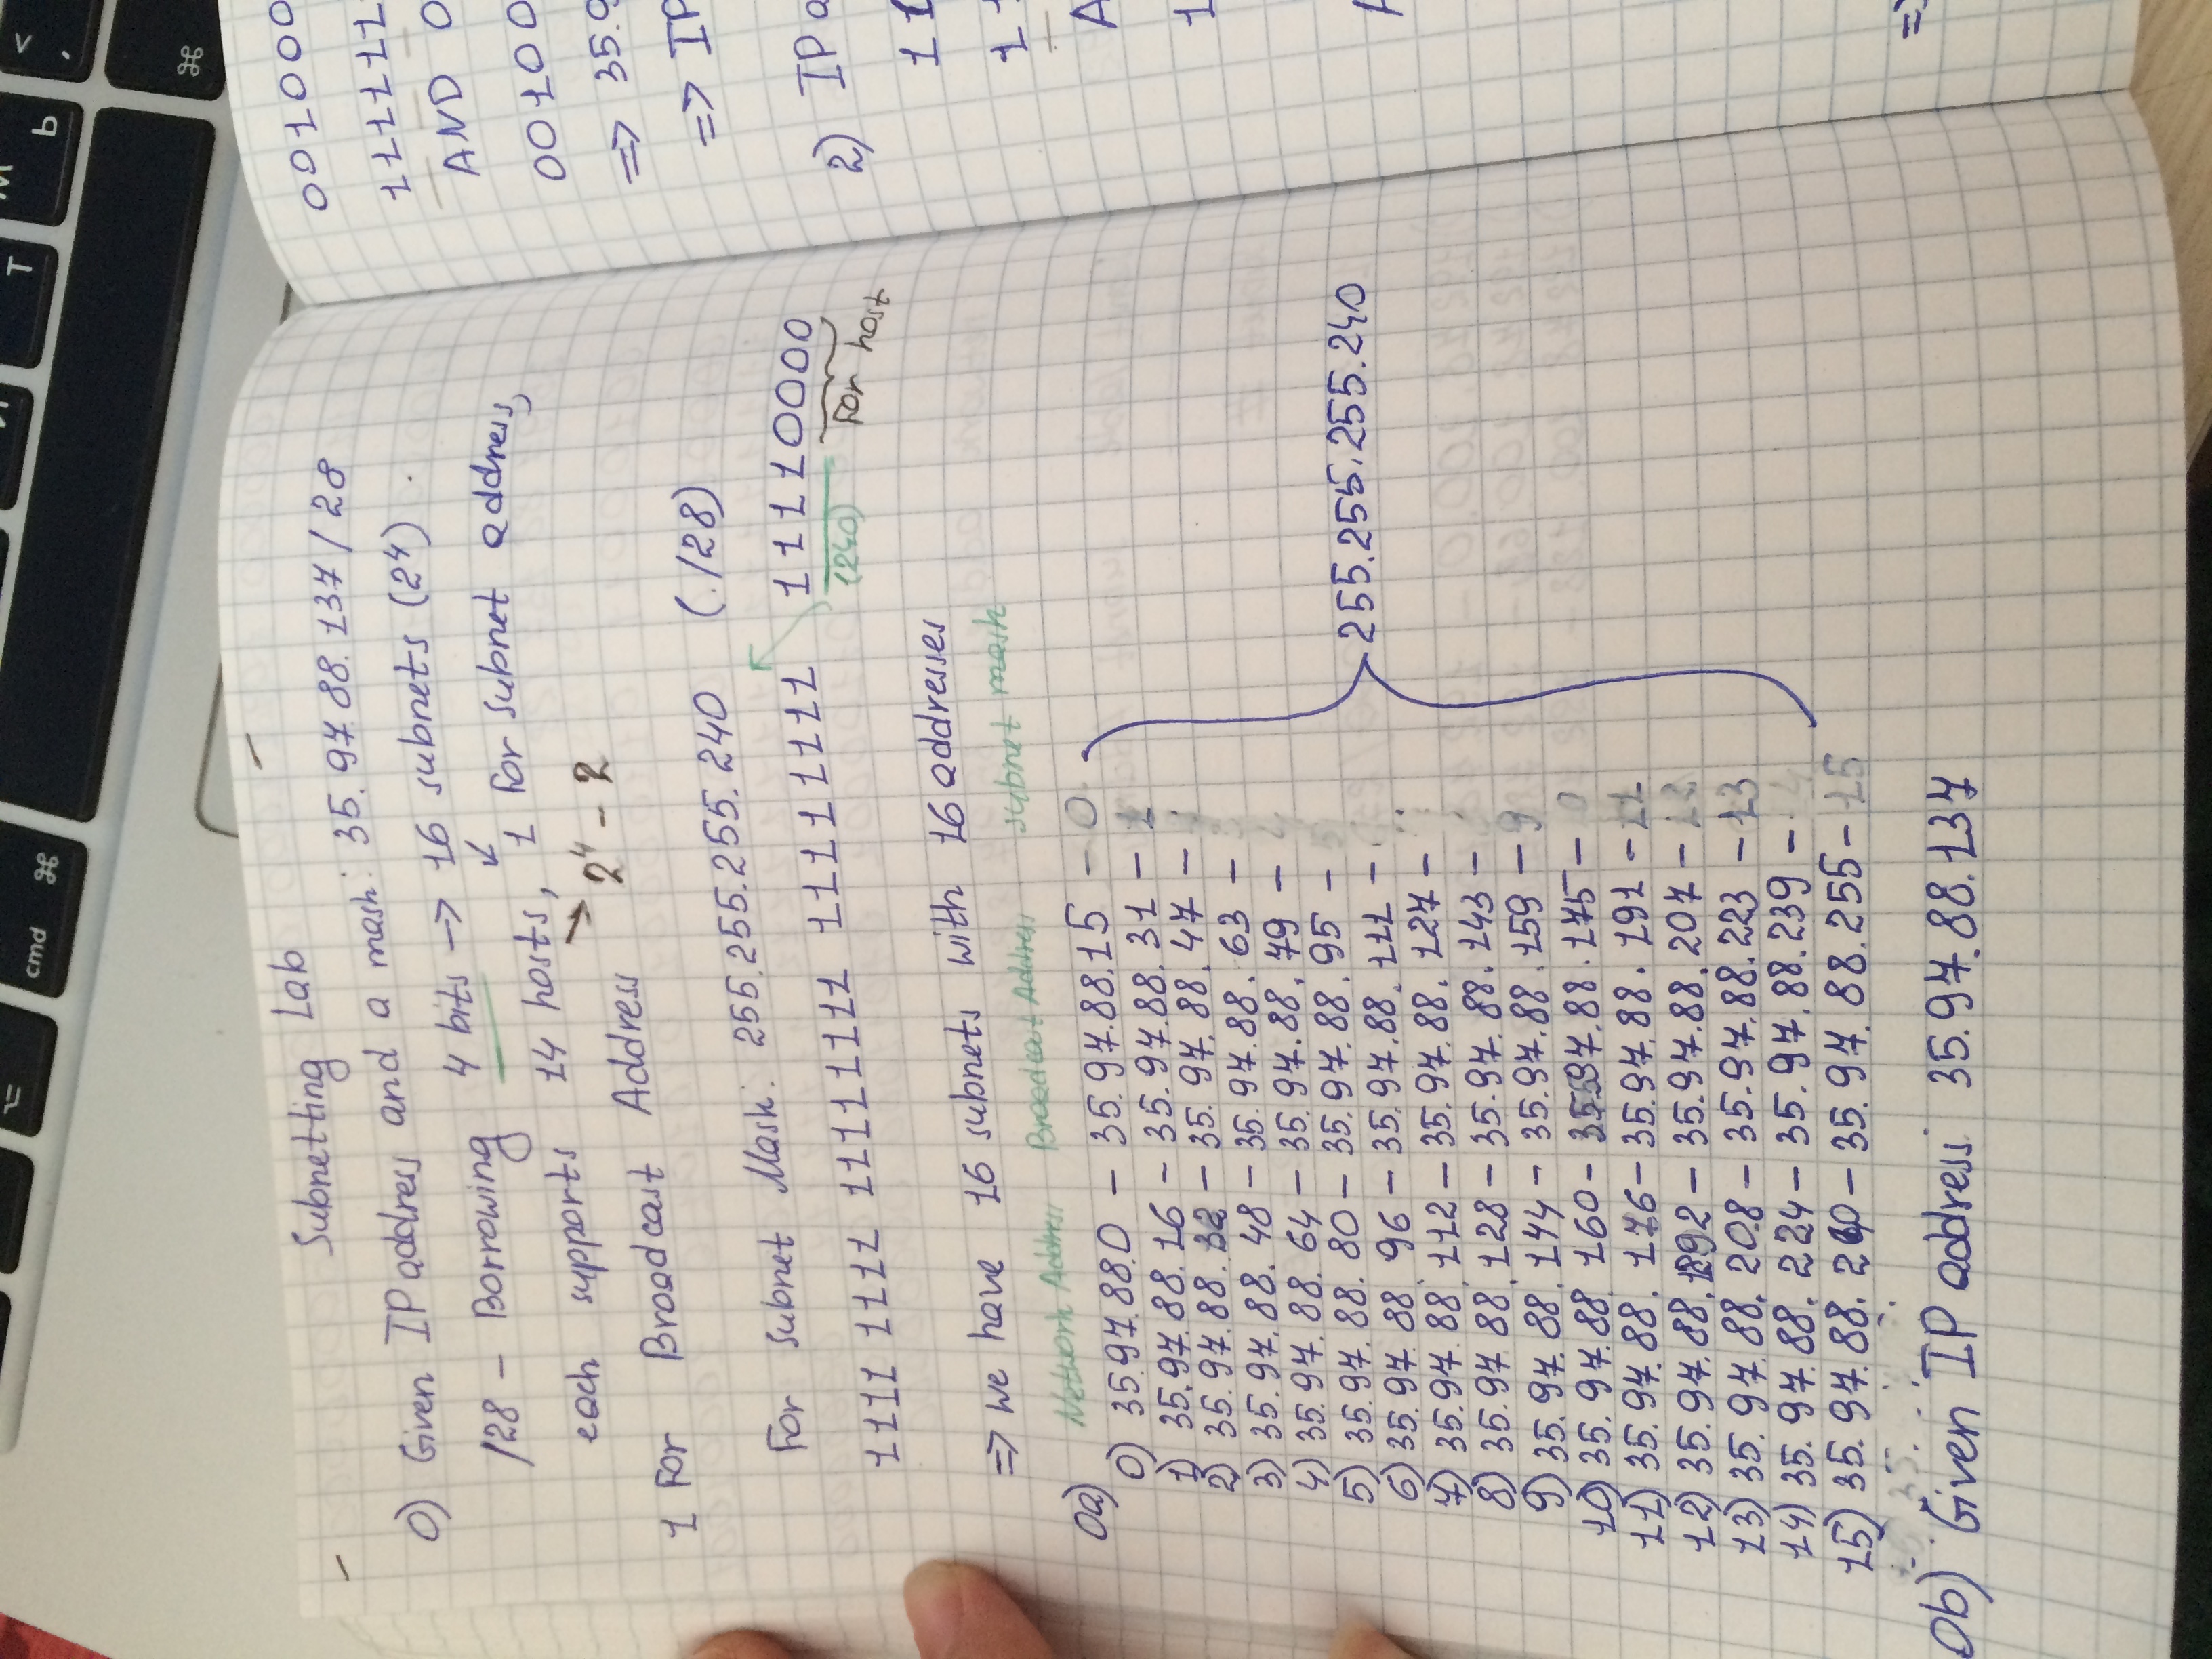 cmd ⌘
T
Ь
<
,
⌘
Subnetting Lab
0) Given IP address and a mask: 35.97.88.137 / 28
/28 - Borrowing 4 bits -> 16 subnets (2⁴)
each supports 14 hosts, 1 For subnet address,
1 For Broadcast Address 2⁴ - 2
For subnet Mask: 255.255.255.240 (./28)
1111 1111 11111111 11111111 11110000
(240) For host
=> we have 16 subnets with 16 addresses
Network Address Broadcast Address subnet mask
0a)
0) 35.97.88.0 - 35.97.88.15 - 0
1) 35.97.88.16 - 35.97.88.31 - 1
2) 35.97.88.32 - 35.97.88.47 -
3) 35.97.88.48 - 35.97.88.63 -
4) 35.97.88.64 - 35.97.88.79 -
5) 35.97.88.80 - 35.97.88.95 - 5
255.255.255.240
6) 35.97.88.96 - 35.97.88.111 -
7) 35.97.88.112 - 35.97.88.127 -
8) 35.97.88.128 - 35.97.88.143 -
9) 35.97.88.144 - 35.97.88.159 - 9
10) 35.97.88.160 - 35.97.88.175 - 0
11) 35.97.88.176 - 35.97.88.191 - 11
12) 35.97.88.192 - 35.97.88.207 - 12
13) 35.97.88.208 - 35.97.88.223 - 13
14) 35.97.88.224 - 35.97.88.239 -
15) 35.97.88.240 - 35.97.88.255 - 15
0b) Given IP address: 35.97.88.137
001000
111111
AND 0
00100
=> 35.9
=> IP
2) IP a
11
11
A
1
A
=>